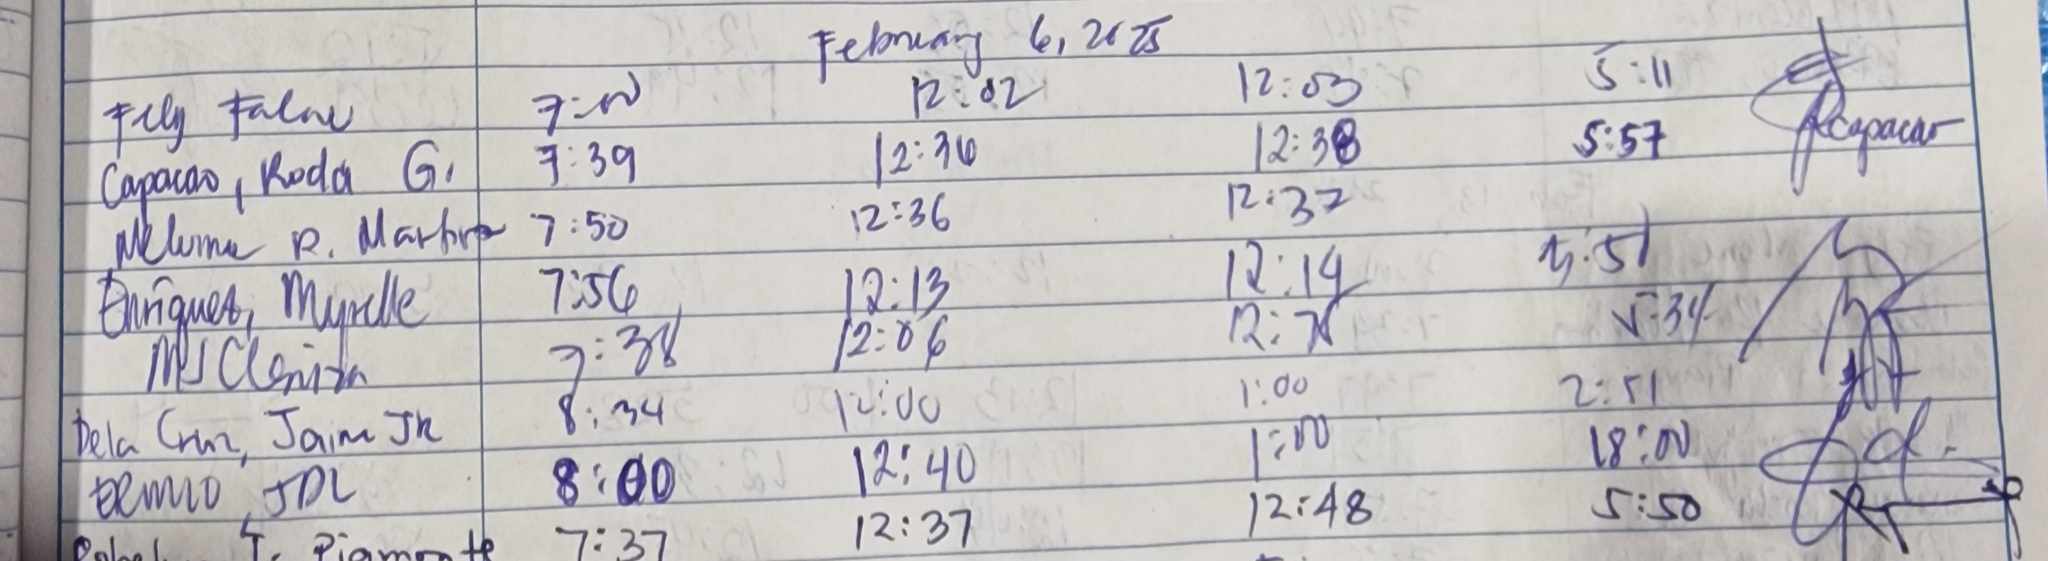 February 6, 2025
Fely 7:00 12:02 12:03 5:11
Capacao, Roda G. 7:39 12:36 12:38 5:57 Capacao
R. 7:50 12:36 12:37
Enriquez, Myrelle 7:56 12:13 12:14 5:51
MJ Cleniza 7:38 12:06 12: 5:34
Dela Cruz, Jaime Jr 8:34 12:00 1:00 2:51
JDL 8:00 12:40 1:00 18:00
T. Piamonte 7:37 12:37 12:48 5:50